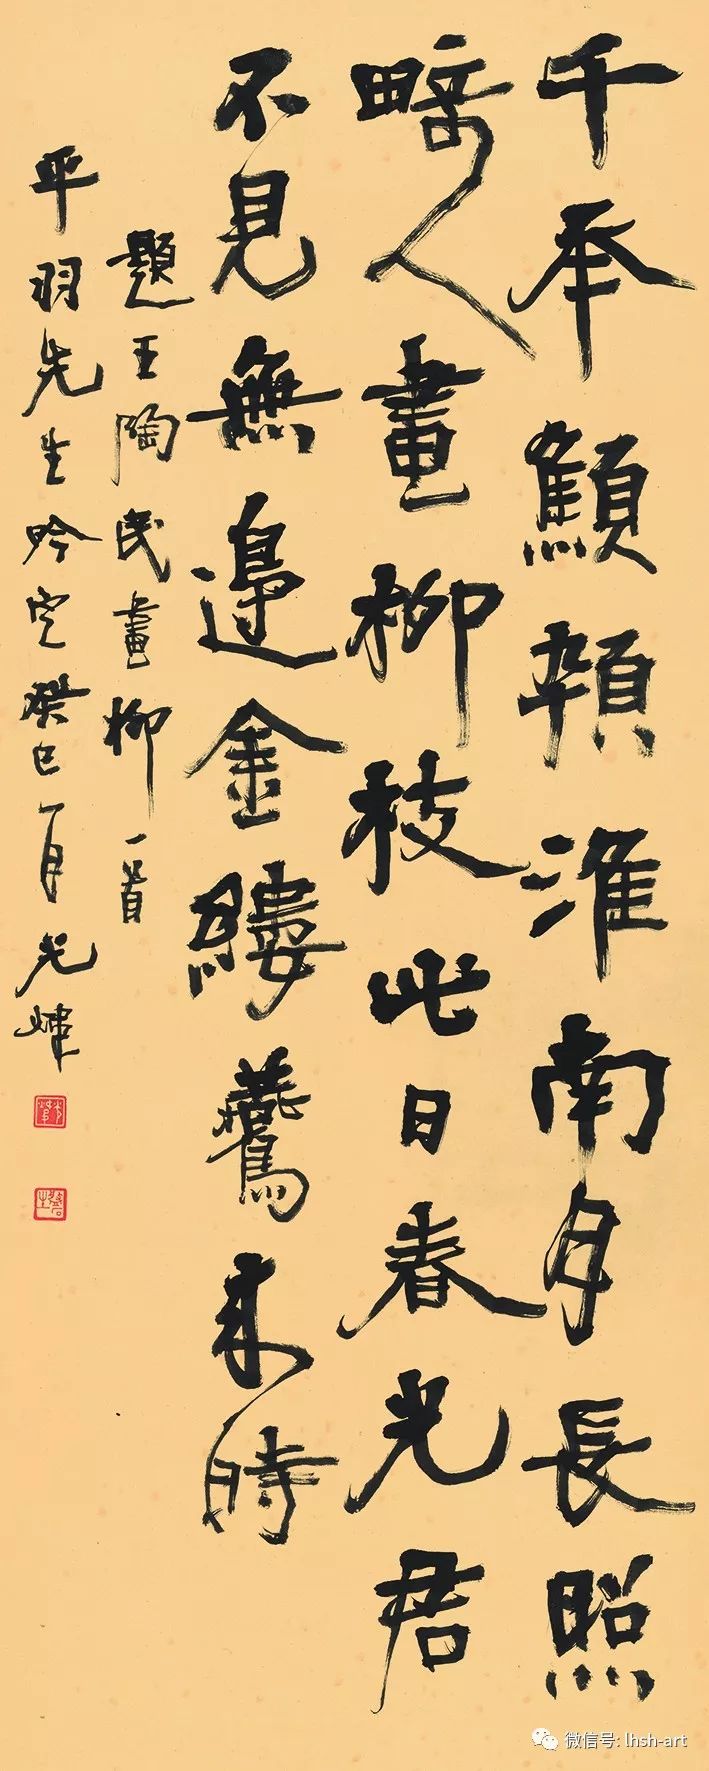 千年顦顇淮南月長照
畸人畫柳枝此日春光君
不見無邊金縷鷰來時
題王陶民畫柳一首
平羽先生吟定癸巳一月光煒
微信号: lhsh-art